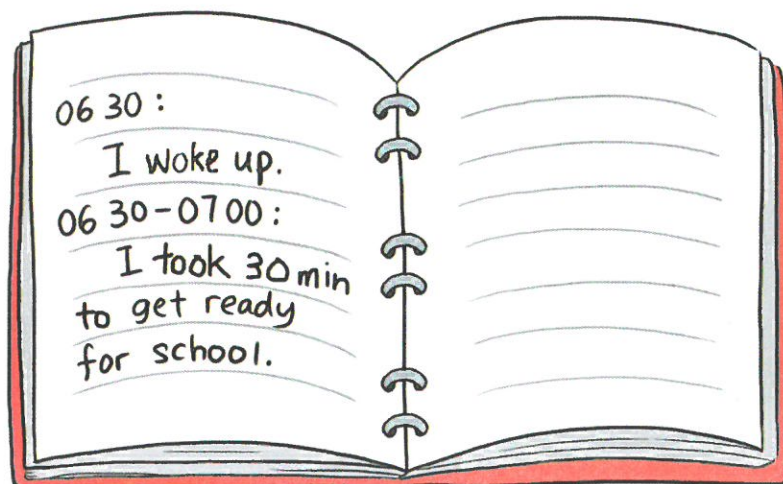 06 30 :
I woke up.
06 30 - 07 00 :
I took 30 min
to get ready
for school.